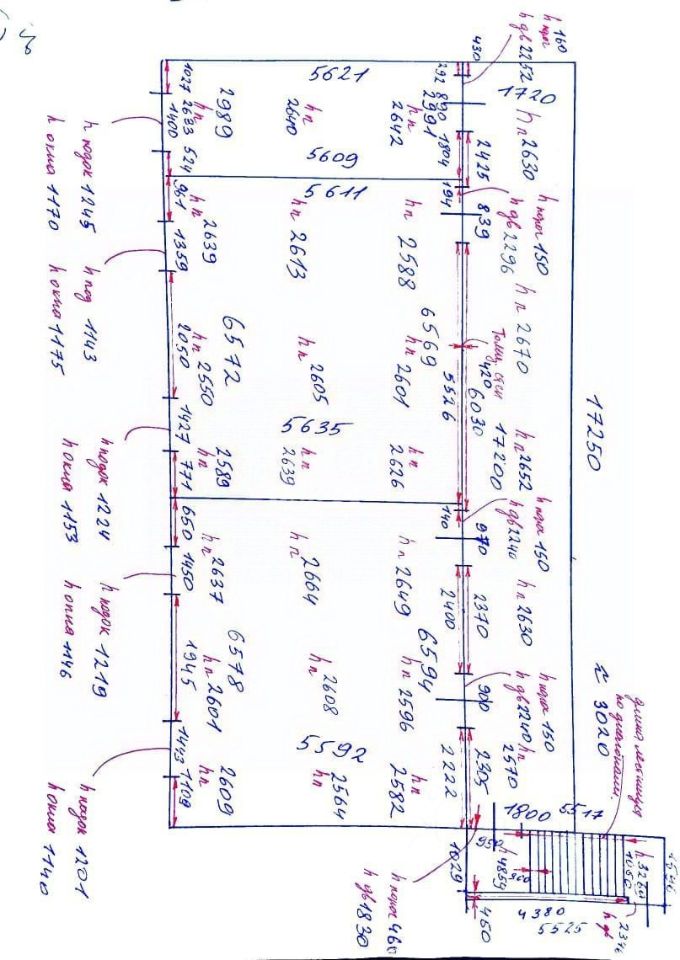 h порог 160
h дв 2252
430
292
890
1720
5621
1027
2633
1400
524
2989
h п
h п
2640
h п
2642
2991
1804
2425
h п 2630
5609
5611
194
839
h порог 150
h дв 2296
961
1359
2639
h п
h п
2613
h п
2588
h п 2670
17250
h подок 1245
h окна 1170
h под 1143
h окна 1175
6572
2050
h п
2550
h п
2605
h п
2601
6569
5526
420
6030
17200
h п 2652
5635
1427
771
2589
h п
h п
2639
h п
2626
140
970
h порог 150
h дв 2240
h подок 1224
h окна 1153
650
1450
h п
2637
h п
2664
h п
2649
2400
2370
h п 2630
6578
1945
h п
2601
h п
2608
h п
2596
6594
900
h порог 150
h дв 2240
h п
2570
h подок 1219
h окна 1146
5592
1443
1109
2609
h п
2564
h п
2582
h п
2222
2305
длина лестницы
по диагонали.
≈ 3020
1800
5517
950
1029
450
4380
5525
h дв
2346
h порог 460
h дв 1830
h подок 1201
h окна 1140